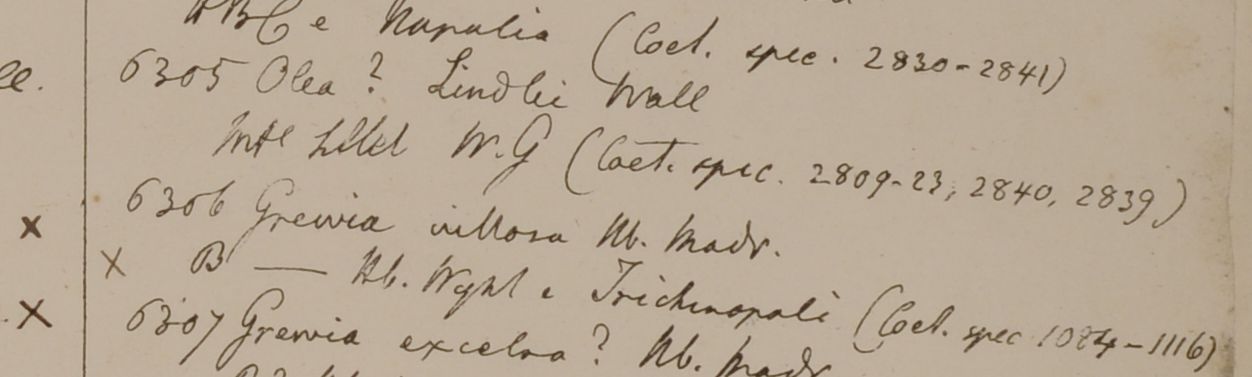 HBC e Napalia (Coet. spec. 2830-2841)
ll. 6305 Olea? Lindlei Wall
W.G (Coet. spec. 2809-23, 2840, 2839)
6306 Grewia villosa Hb. Madr.
x x B — Hb. Wight e Trichinopoli (Coet. spec 1084-1116)
x 6307 Grewia excelsa? Hb. Madr